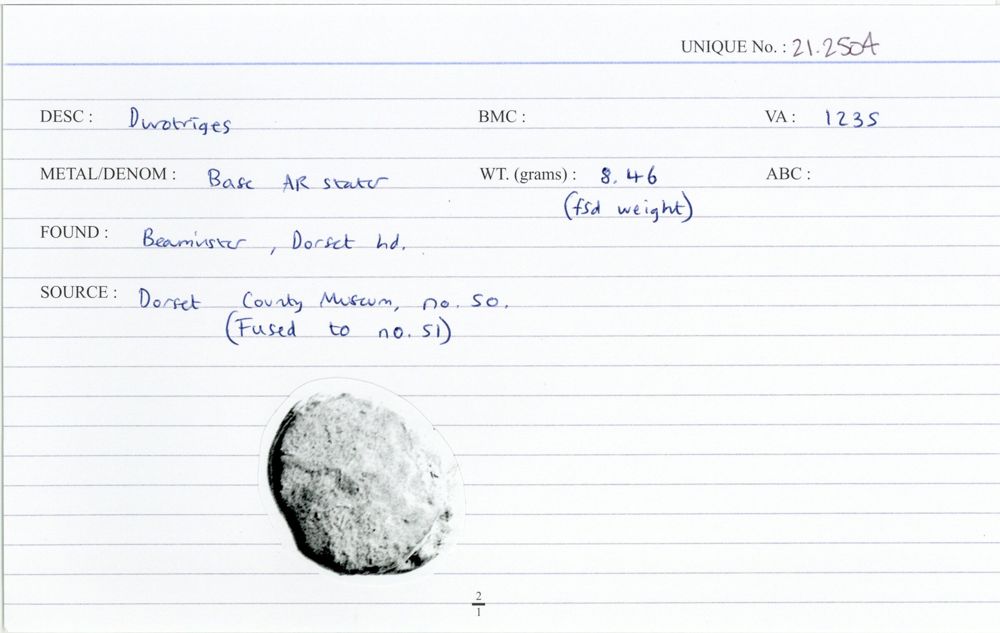 UNIQUE No. : 21.250A
DESC : Durotriges BMC : VA : 1235
METAL/DENOM : Base AR stater WT. (grams) : 8.46 ABC :
(fsd weight)
FOUND : Beaminster, Dorset hd.
SOURCE : Dorset County Museum, no. 50.
(Fused to no. 51)
2
1